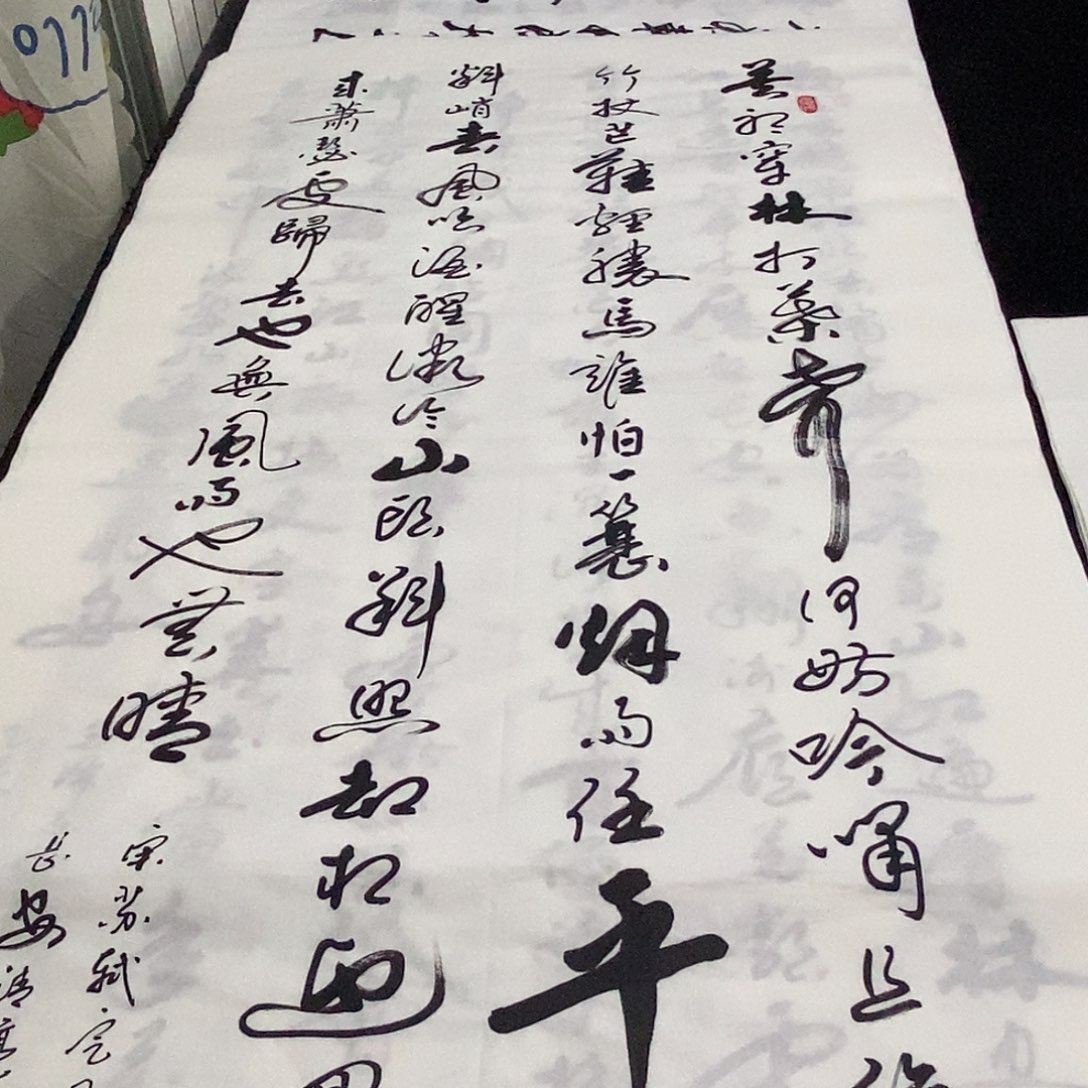 莫聽穿林打葉聲何妨吟嘯且徐
竹杖芒鞋輕勝馬誰怕一蓑烟雨任平
料峭春風吹酒醒微冷山頭斜照却相迎回
来蕭瑟處歸去也無風雨也無晴
宋蘇軾定風
長安清